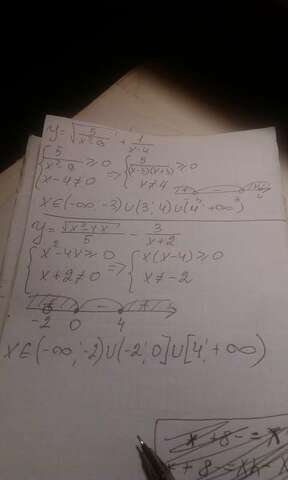 y = √(5/(x²-9)) + 1/(x-4)
{ 5/(x²-9) ≥ 0 => { 5/((x-3)(x+3)) ≥ 0
x-4≠0 x≠4
+ - +
x∈(-∞;-3)∪(3;4)∪[4;+∞)
y = √(x²-4x)/5 - 3/(x+2)
{ x²-4x ≥ 0 => { x(x-4) ≥ 0
x+2≠0 x≠-2
+ - +
-2 0 4
x∈(-∞;-2)∪(-2;0]∪[4;+∞)